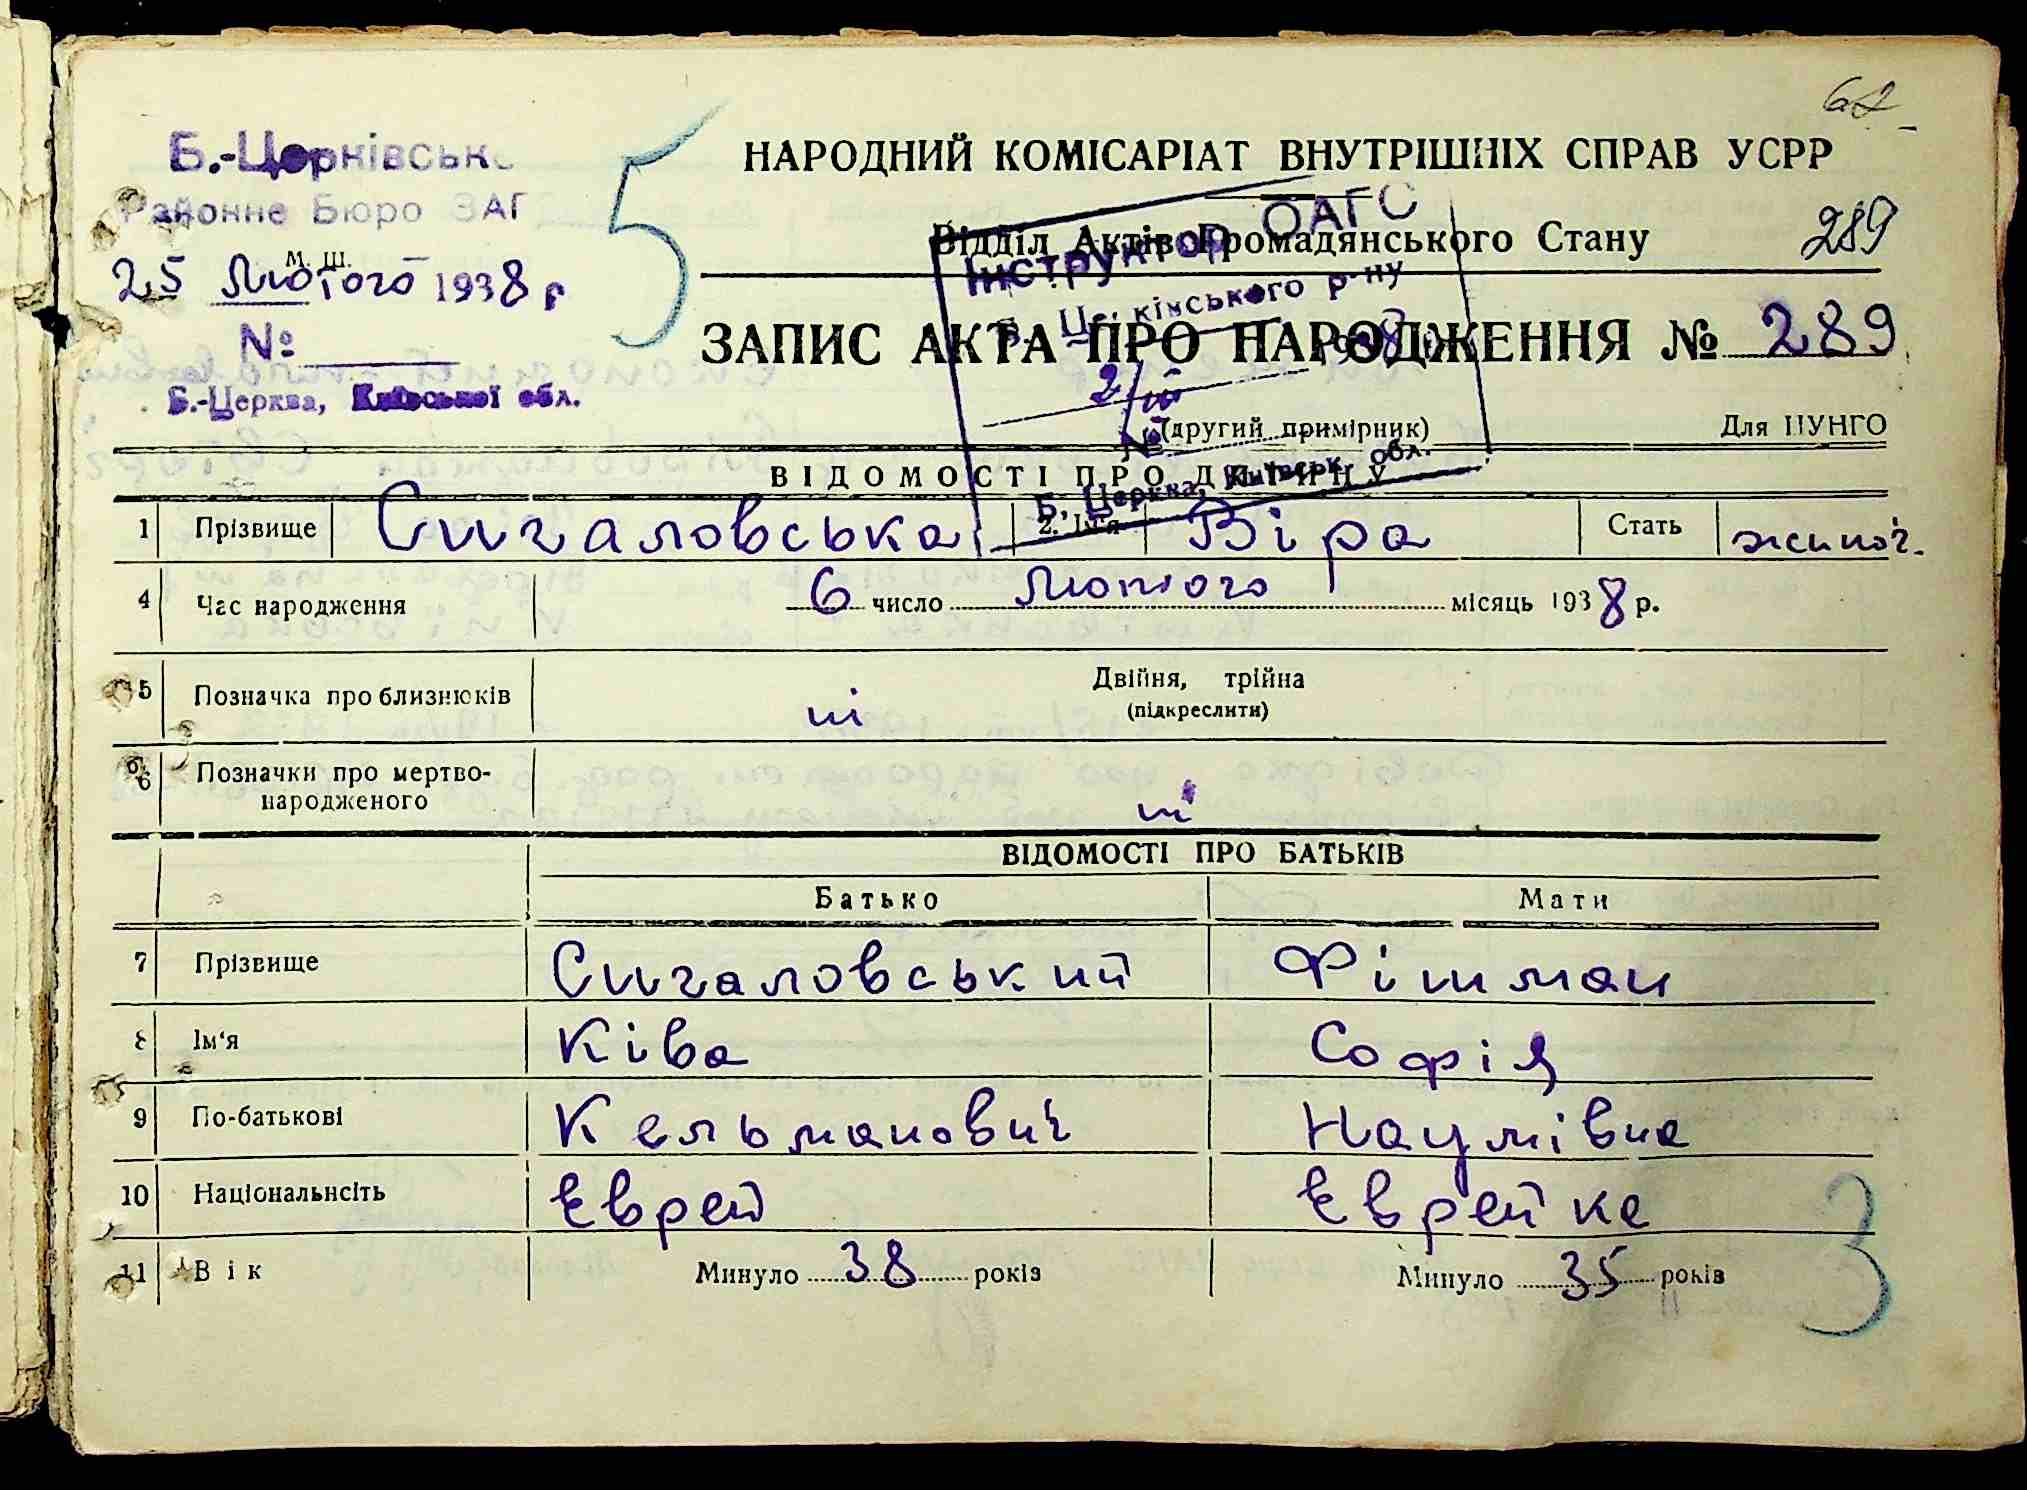 62
Б.-Церківськ
Районне Бюро ЗАГ
М. Ш.
25 Лютого 1938 р
№
Б.-Церква, Київської обл.
5
НАРОДНИЙ КОМІСАРІАТ ВНУТРІШНІХ СПРАВ УСРР
Відділ Актів Громадянського Стану
289
ЗАПИС АКТА ПРО НАРОДЖЕННЯ № 289
Інструктор ОАГС
Б. Церківського р-ну
2/III 1938
№
Б. Церква, Київськ. обл.
(другий примірник)
Для ЦУНГО
ВІДОМОСТІ ПРО ДИТИНУ
1 Прізвище Сигаловська 2. Ім'я Віра Стать жиноч.
4 Час народження 6 число Лютого місяць 1938 р.
5 Позначка про близнюків ні Двійня, трійна
(підкреслити)
6 Позначки про мертво-
народженого ні
ВІДОМОСТІ ПРО БАТЬКІВ
Батько Мати
7 Прізвище Сигаловський Фішман
8 Ім'я Ківа Софія
9 По-батькові Кельманович Наумівна
10 Національнсіть Єврей Єврейка
11 Вік Минуло 38 років Минуло 35 років
3